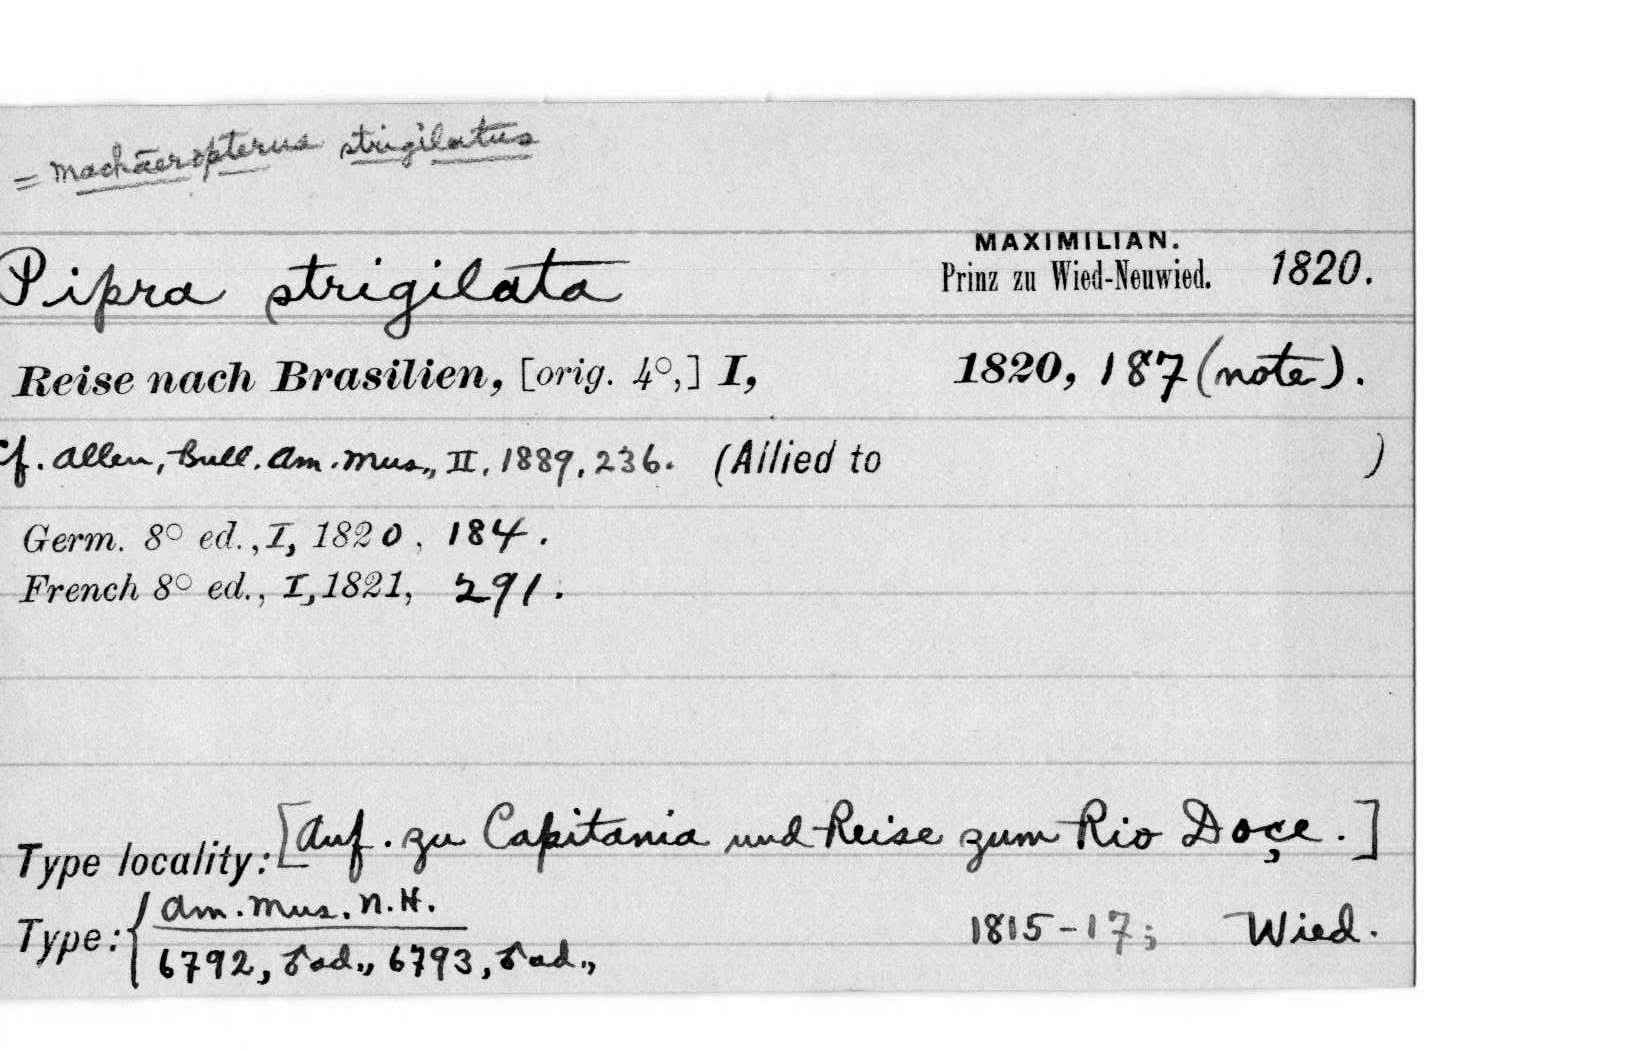 = Machaeropterus strigilatus
MAXIMILIAN.
Pipra strigilata Prinz zu Wied-Neuwied. 1820.
Reise nach Brasilien, [orig. 4°,] I, 1820, 187 (note).
Cf. Allen, Bull. Am. Mus., II, 1889, 236. (Allied to )
Germ. 8° ed., I, 1820, 184.
French 8° ed., I, 1821, 291.
Type locality: [Auf. zu Capitania und Reise zum Rio Doçe.]
Type: { Am. Mus. N.H. 1815-17; Wied.
6792, ♂ ad., 6793, ♂ ad.,